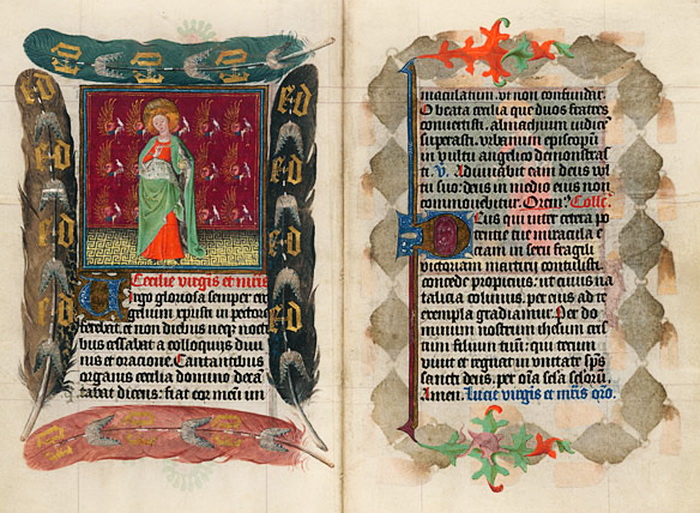 e·d e·d e·d
Cecilie virgis et mris
Uirgo gloriosa semper eva
gelium xpisti in pectore
ferebat. et non diebus neqz nocti
bus cessabat a colloquijs diui
nis et oracione. Cantantibus
organis cecilia domino decā
tabat dicens: fiat cor meū im
maculatum. ut non confundar.
O beata cecilia que duos fratres
convertisti. almachium iudicē
superasti. urbanum episcopū
in vultu angelico demonstras
ti. V. Adiuvabit eam deus vul
tu suo: deus in medio eius non
commouebitur. Orem? Collc.
Deus qui inter cetera po
tentie tue miracula e
ciam in sexu fragili
victoriam martirij contulisti.
concede propicius: ut cuius na
talicia colimus. per eius ad te
exempla gradiamur. Per do
minum nostrum ihesum cris
tum filium tuū: qui tecum
vivit et regnat in unitate sp̄s
sancti deus. per oīa sc̄la sc̄lorū.
Amen. Lucie virgis et mris oro.